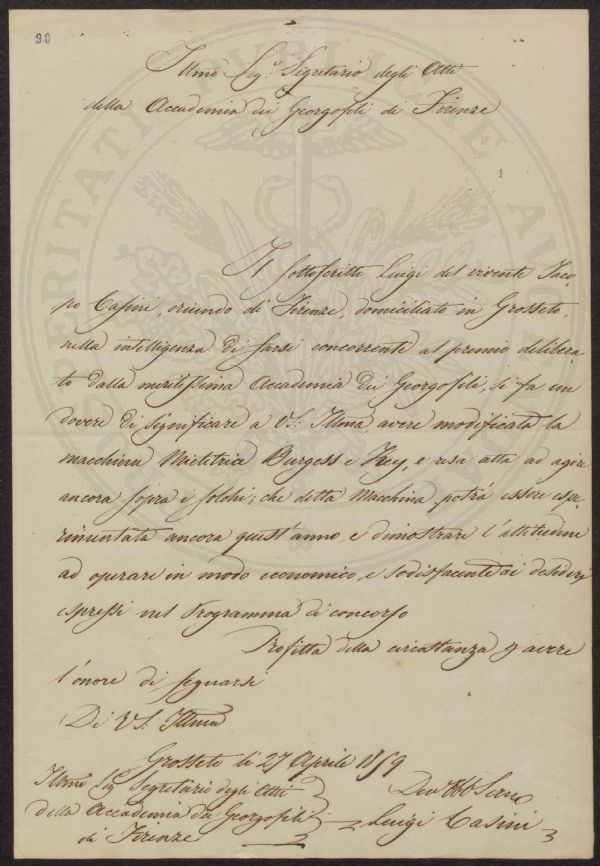 90
Illmo Sigr. Segretario degli Atti
della Accademia dei Georgofili di Firenze
1
Il sottoscritto Luigi del vivente Jaco-
po Casini, oriundo di Firenze, domiciliato in Grosseto,
nella intelligenza di farsi concorrente al premio delibera-
to dalla meritissima Accademia dei Georgofili, si fa un
dovere di significare a VS. Illma avere modificata la
macchina Mietitrice Burgess e Key, e resa atta ad agire
ancora sopra i solchi; che detta Macchina potrà essere espe-
rimentata ancora quest'anno, e dimostrare l'attitudine
ad operare in modo economico, e sodisfacente ai desiderj
espressi nel Programma di concorso
Profitta della circostanza p avere
l'onore di segnarsi
Di VS. Illma
Grosseto lì 27 Aprile 1859
Illmo Sig Segretario degli Atti
della Accademia dei Georgofili
di Firenze
Dev Obb Servo
Luigi Casini